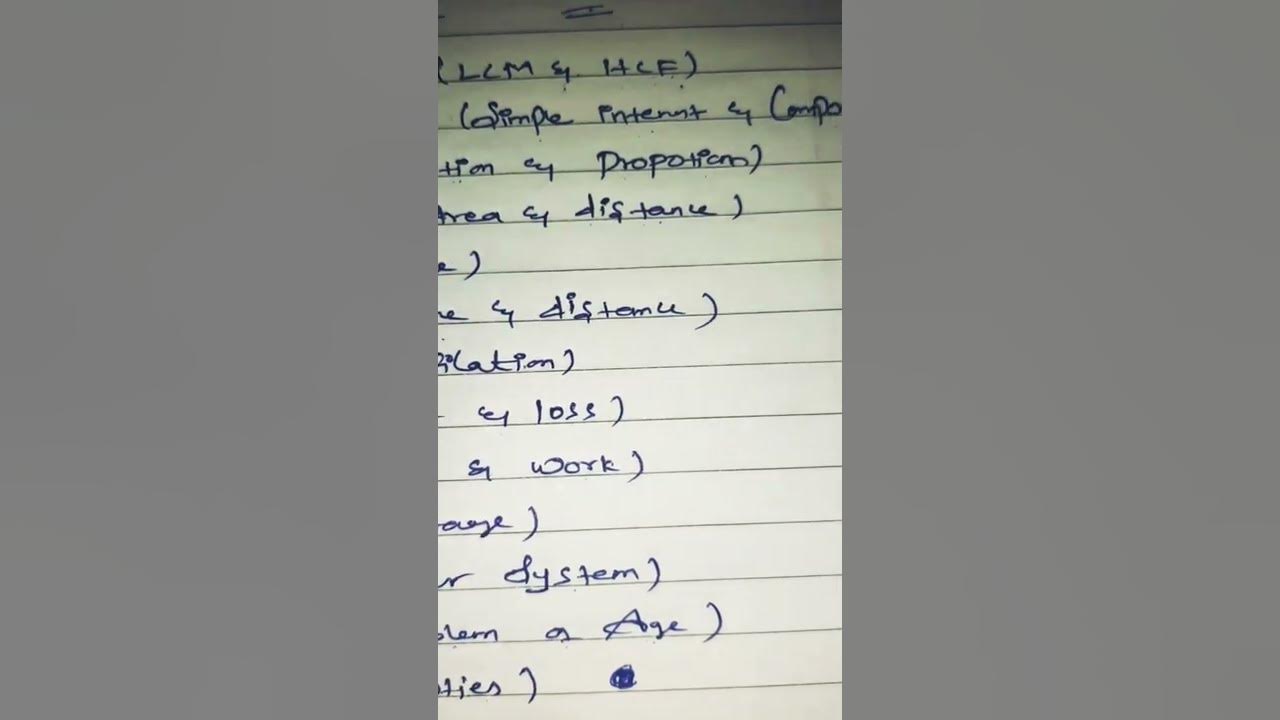 (LCM & HCF)
(Simple interest & Compo
tion & Propotions)
Area & distance)
e)
me & distance)
ilation)
& loss)
& Work)
rage)
r System)
blem of Age)
ties)